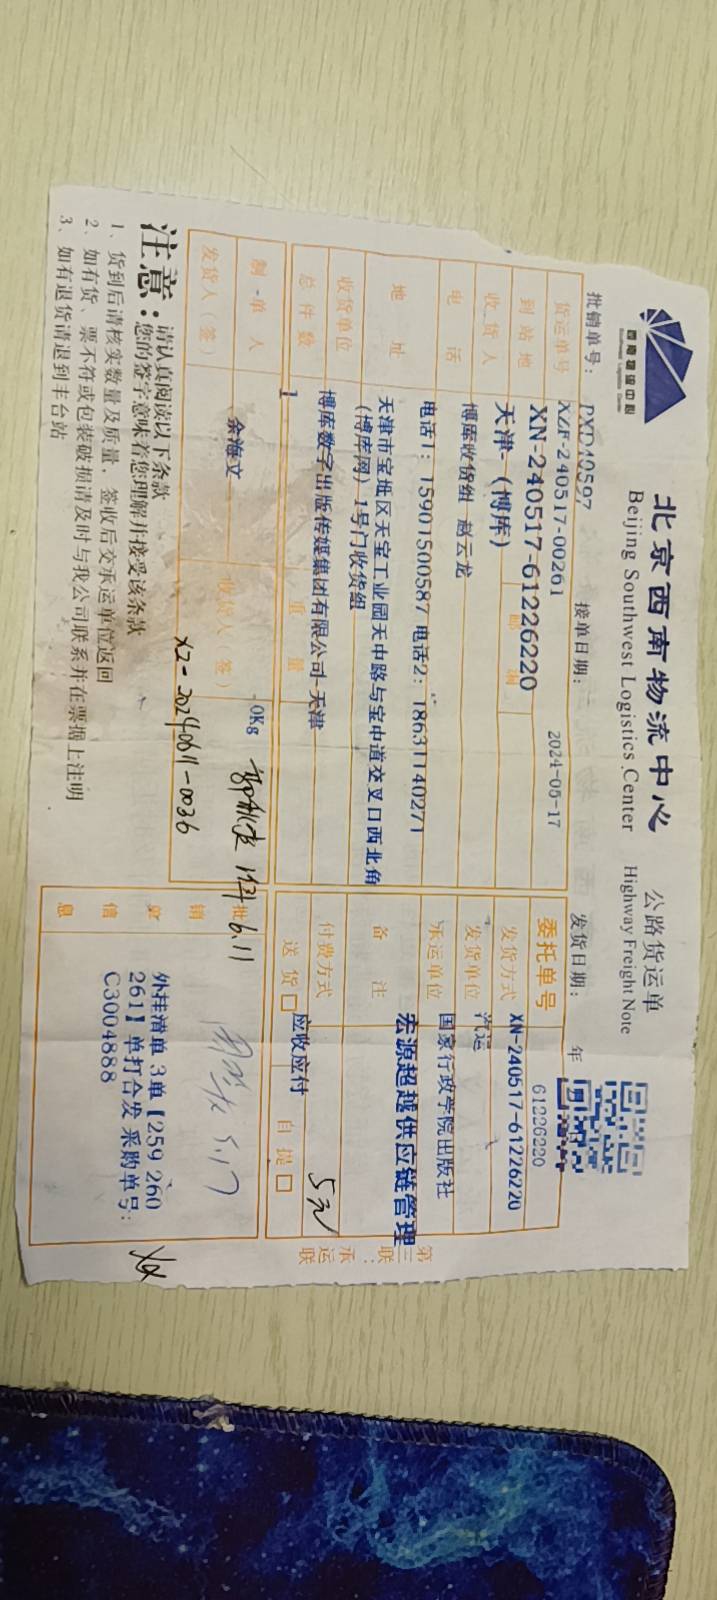 西南物流中心
Southwest Logistics Center
北京西南物流中心 公路货运单
Beijing Southwest Logistics Center Highway Freight Note
批销单号: PXD40597 接单日期: 2024-05-17 发货日期: 年
货运单号 XZF-240517-00261
61226220
到站地 XN-240517-61226220 委托单号 XN-240517-61226220
天津-(博库) 邮编
收货人 博库收货组 赵云龙 发货方式 汽运
电话 电话1: 15901500587 电话2: 18631140271 发货单位 国家行政学院出版社
地址 天津市宝坻区天宝工业园天中路与宝中道交叉口西北角
(博库网) 1号门收货组
承运单位 宏源超越供应链管理
收货单位 博库数字出版传媒集团有限公司-天津 备注
总件数 1 重量 0Kg 付费方式 应收应付 5元
制单人 余海文 收货人(签) 送货□ 自提□
发货人(签)
6.11
XZ-20240611-0036
5.17
批销
效
信息
外挂清单 3单【259 260
261】单打合发 采购单号:
C3004888
第三联:承运联
注意: 请认真阅读以下条款
您的签字意味着您理解并接受该条款
1、货到后请核实数量及质量, 签收后交承运单位返回
2、如有货、票不符或包装破损请及时与我公司联系并在票据上注明
3、如有退货请退到丰台站